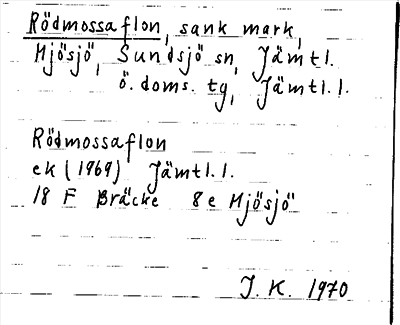 Rödmossaflon, sank mark,
Mjösjö, Sundsjö sn, Jämtl.
ö. doms. tg, Jämtl. l.
Rödmossaflon
ek (1969) Jämtl. l.
18 F Bräcke 8e Mjösjö
J. K. 1970